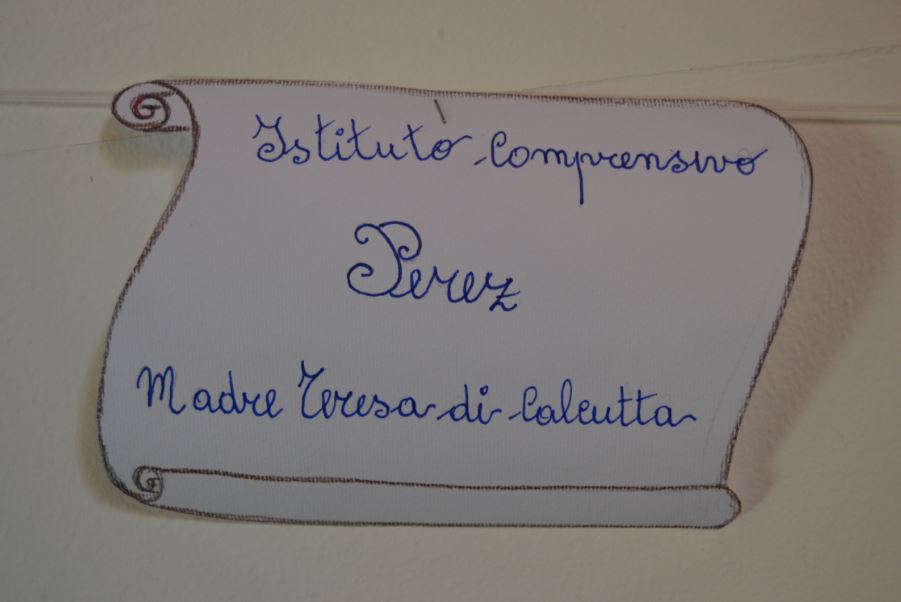 Istituto Comprensivo
Perez
Madre Teresa di Calcutta